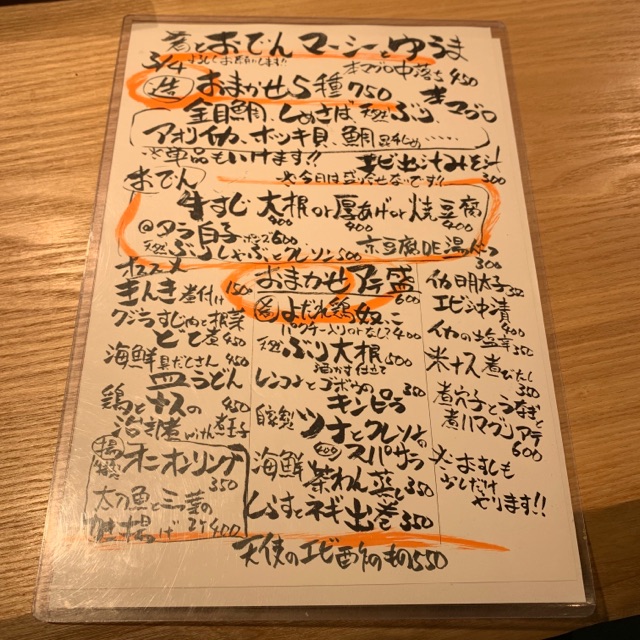 肴とおでん マーシーとゆうま
3/4 よろしくお願いします!!
本マグロ中落ち 950
造 おまかせ5種 750 本マグロ
金目鯛、しめさば、天然ぶり
アオリイカ、ホッキ貝、鯛昆布じめ、……
※単品もいけます!! エビ出汁みそ汁 300
おでん ※今日は
牛すじ 400 大根 or 厚あげ or 焼豆腐 400
@タラ白子 ポン酢 600
天然ぶりしゃぶとクレソン 500 京豆腐DE湯ドーフ 300
オススメ
きんき煮付け 1500
クジラすじ肉と根菜
どて煮 950
海鮮具だくさん 950
皿うどん
鶏とナスの 950
治部煮 with 煮玉子
揚物
オニオンリング 350
太刀魚と三葉の
かき揚げ 400
おまかせアテ盛 600
よだれ鶏奴
パクチー入り or なし 400
天然ぶり大根 500
酒かす仕立て
レンコンとゴボウの 350
キンピラ
自家製ツナとクレソンの
スパサラ
海鮮茶わん蒸し 350
しらすとネギ出巻 350
イカ明太子 350
エビ沖漬 400
イカの塩辛 350
米ナス煮びたし 350
煮穴子とうなぎと
煮ハマグリアテ 600
※おすしも
少しだけ
やります!!
天使のエビ酢のもの 550